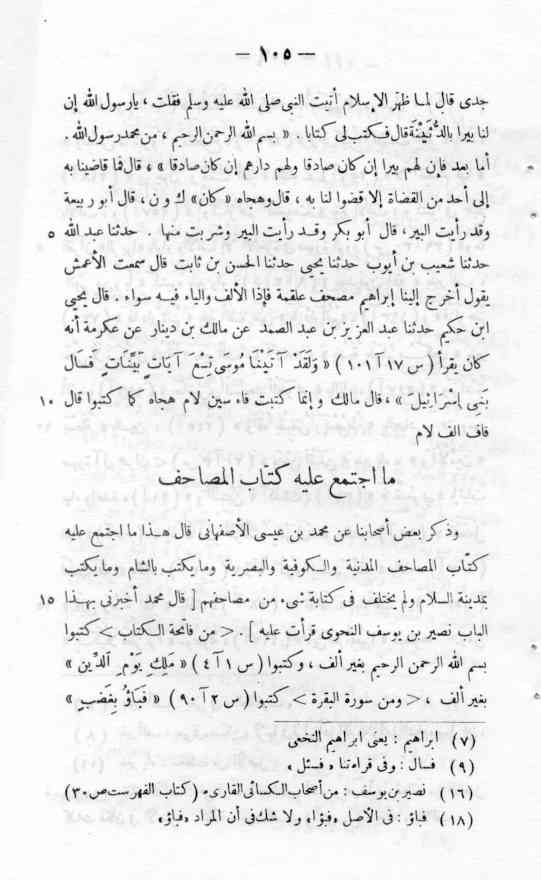 — ١٠٥ —
جدى قال لمـا ظهر الإسلام أتيت النبى صلى الله عليه وسلم فقلت ، يارسول الله إن
لنا بيرا بالدُّثَيْنَة قال فـكتب لى كتابا . « بسم الله الرحمن الرحيم ، من محمد رسول الله .
أما بعد فإن لهم بيرا إن كان صادقا ولهم دارهم إن كان صادقا » ، قال فما قاضينا به
إلى أحد من القضاة إلا قضوا لنا به ، قال وهجاه «كان» ك و ن ، قال أبو ربيعة
وقد رأيت البير ، قال أبو بكر وقـد رأيت البير وشربت منها . حدثنا عبد الله ٥
حدثنا شعيب بن أيوب حدثنا يحيى حدثنا الحسن بن ثابت قال سمعت الأعمش
يقول أخرج إلينا إبراهيم مصحف علقمة فإذا الألف والياء فيـه سواء . قال يحيى
ابن حكيم حدثنا عبد العزيز بن عبد الصمد عن مالك بن دينار عن عكرمة أنه
كان يقرأ (س ١٧ آ ١٠١) « وَلَقَدْ آتَيْنَا مُوسَى تِسْعَ آيَاتٍ بَيِّنَاتٍ فَسَال
بَنِى إِسْرَائِيلَ » ، قال مالك وإنما كتبت فاء سين لام هجاه كما كتبوا قال ١٠
قاف الف لام
ما اجتمع عليه كتّاب المصاحف
وذكر بعض أصحابنا عن محمد بن عيسى الأصفهانى قال هـذا ما اجتمع عليه
كتّاب المصاحف المدنية والـكوفية والبصرية وما يكتب بالشام وما يكتب
بمدينة السـلام ولم يختلف فى كتابة شىء من مصاحفهم [ قال محمد أخبرنى بهـذا ١٥
الباب نصير بن يوسف النحوى قرأت عليه ] . < من فاتحة الـكتاب > كتبوا
بسم الله الرحمن الرحيم بغير ألف ، وكتبوا (س ١ آ ٤) « مَلِكِ يَوْمِ الدِّينِ »
بغير ألف ، < ومن سورة البقرة > كتبوا (س ٢ آ ٩٠) « فَبَاؤُ بِغَضَبٍ »
(٧) ابراهيم : يعنى ابراهيم النخعى
(٩) فسال : وفى قراءتنا « فسئل »
(١٦) نصير بن يوسف : من أصحاب الكسائى القارىء (كتاب الفهرست ص ٣٠)
(١٨) فباؤ : فى الأصل «فبؤا» ولا شك فى أن المراد «فباؤ»